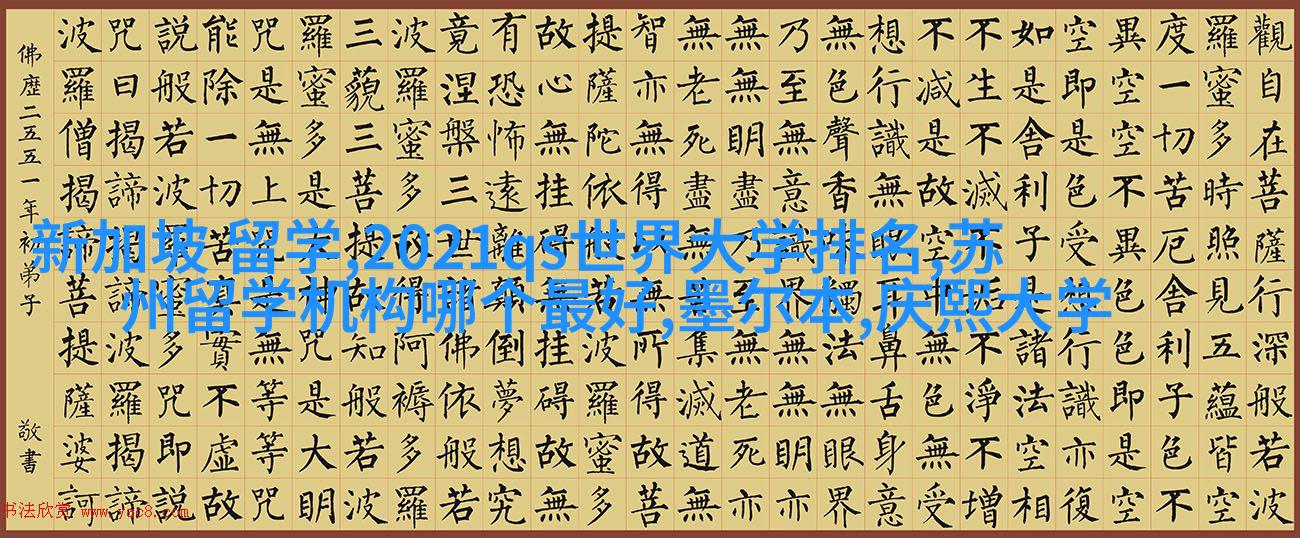 觀自在菩薩行深般若波
羅蜜多時照見五蘊皆空
度一切苦厄舍利子色不
異空空不異色色即是空
空即是色受想行識亦復
如是舍利子是諸法空相
不生不滅不垢不淨不增
不減是故空中無色無受
想行識無眼耳鼻舌身意
無色聲香觸法無眼界
乃至無意識界無無明亦
無無明盡乃至無老死亦
無老死盡無集滅道無
智亦無得無所得故菩
提薩陀依般若波羅蜜多
故心無挂碍無挂碍故無
有恐怖遠離顛倒夢想究
竟涅槃三世諸佛依般若
波羅蜜多故得阿褥多羅
三藐三菩提故知般若波
羅蜜多是大神咒是大明
咒是無上咒是無等等咒
能除一切苦真實不虛故
說般若波羅蜜多咒即說
咒曰揭諦揭諦波羅揭諦
波羅僧揭諦菩提薩婆訶
佛歷二五五一年初弟子
敬書
新加坡 留学,2021qs世界大学排名,苏
州留学机构哪个最好,墨尔本,庆熙大学
书法欣赏 www.yac8.com